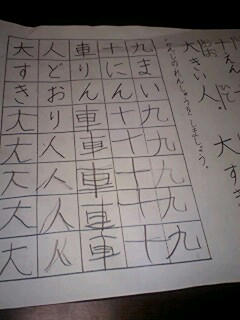 十えん
大きい人 大す
かんじのれんしゅうをしましょう。
九まい九九九九九
十にん十十十十十
車りん車車車車車
人どおり人人人人
大すき大大大大大